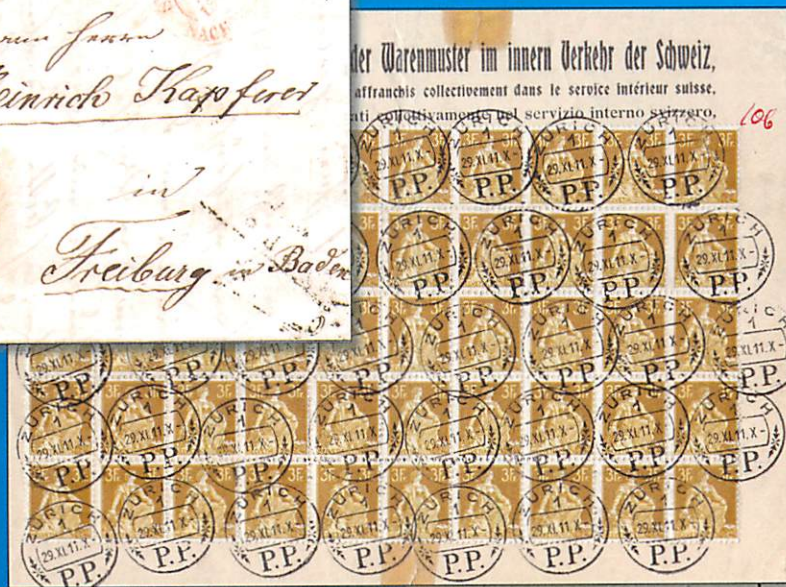 Herrn
Heinrich Kapferer
in
Freiburg in Baden
der Warenmuster im innern Verkehr der Schweiz,
affranchis collectivement dans le service intérieur suisse,
ati collettivamente nel servizio interno svizzero,
106
3Fr
ZÜRICH
1
29.XI.11.X-
P.P.